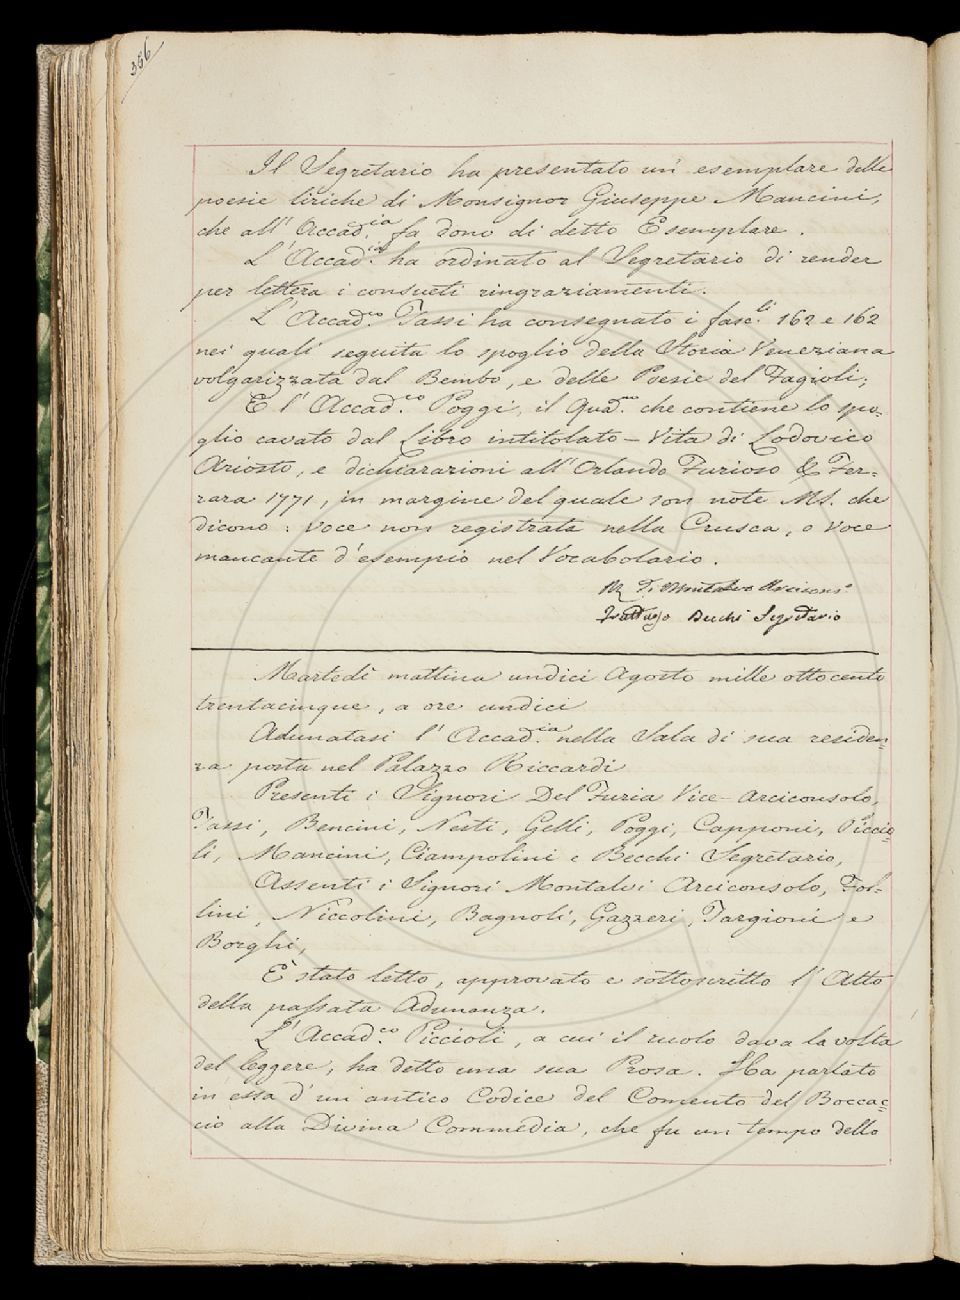 356
Il Segretario ha presentato un' esemplare delle
poesie liriche di Monsignor Giuseppe Mancini,
che all' Accad.ia fa dono di detto Esemplare.
L' Accad.ia ha ordinato al Segretario di render
per lettera i consueti ringraziamenti.
L' Accad.co Tassi ha consegnato i fasc.li 162 e 162
nei quali seguita lo spoglio della Storia Veneziana
volgarizzata dal Bembo, e delle Poesie del Fagioli;
E l' Accad.co Poggi, il Quad.no che contiene lo spo-
glio cavato dal Libro intitolato - Vita di Lodovico
Ariosto, e dichiarazioni all' Orlando Furioso & Fer=
rara 1771, in margine del quale son note Ms. che
dicono: voce non registrata nella Crusca, o voce
mancante d'esempio nel Vocabolario.
Montalvo Arcicons.o
Fruttuoso Becchi Segretario
Martedì mattina undici Agosto mille ottocento
trentacinque, a ore undici
Adunatasi l' Accad.ia nella Sala di sua residen=
za posta nel Palazzo Riccardi
Presenti i Signori Del Furia Vice-Arciconsolo,
Tassi, Bencini, Nesti, Gelli, Poggi, Capponi, Piccio=
li, Mancini, Ciampolini e Becchi Segretario,
Assenti i Signori Montalvi Arciconsolo, Fol=
lini, Niccolini, Bagnoli, Gazzeri, Targioni e
Borghi,
È stato letto, approvato e sottoscritto l' Atto
della passata Adunanza.
L' Accad.co Piccioli, a cui il ruolo dava la volta
del leggere, ha detto una sua Prosa. Ha parlato
in essa d' un antico Codice del Comento del Boccac=
cio alla Divina Commedia, che fu un tempo dello